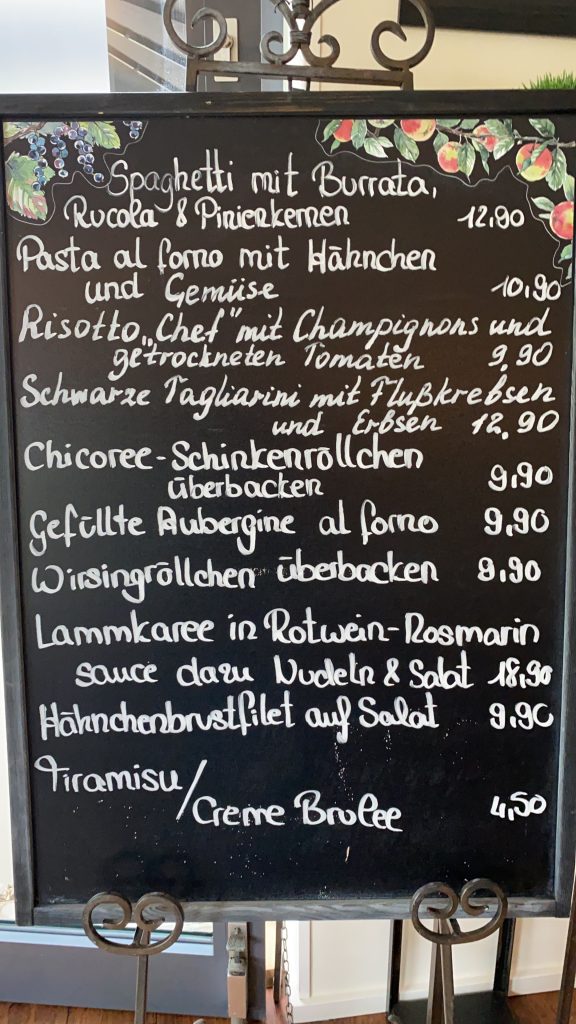 Spaghetti mit Burrata,
Rucola & Pinienkernen 12,90
Pasta al forno mit Hähnchen
und Gemüse 10,90
Risotto „Chef" mit Champignons und
getrockneten Tomaten 9,90
Schwarze Tagliarini mit Flußkrebsen
und Erbsen 12,90
Chicoree-Schinkenröllchen
überbacken 9,90
Gefüllte Aubergine al forno 9,90
Wirsingröllchen überbacken 9,90
Lammkaree in Rotwein-Rosmarin
sauce dazu Nudeln & Salat 18,90
Hähnchenbrustfilet auf Salat 9,90
Tiramisu/
Creme Brulee 4,50